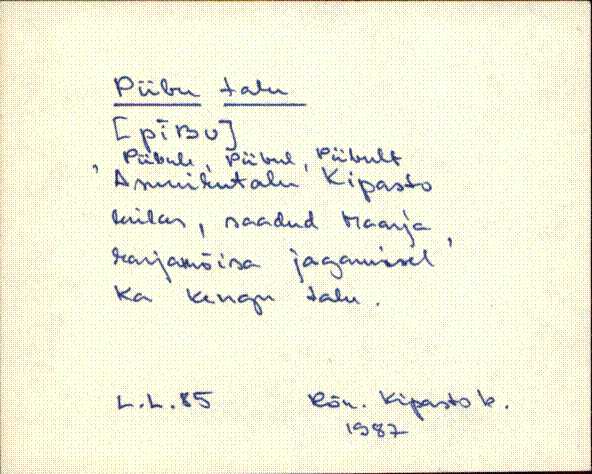 Piibu talu
[pīBu]
, Piibule, Piibul, Piibult
Asunikutalu Kipasto
külas, saadud Maarja
karjamõisa jagamisel,
Ka Kengu talu.
L.L. 85 Rõu. Kipasto k.
1987